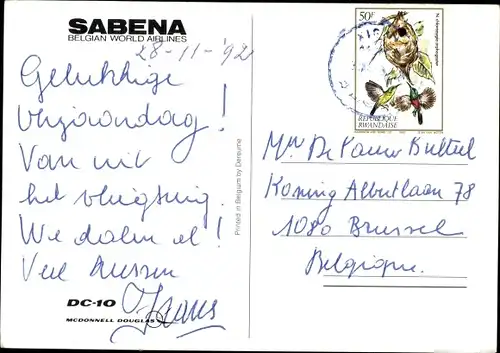 SABENA
BELGIAN WORLD AIRLINES
28-11-'92
Gelukkige
Verjaardag!
Van uit
het vliegtuig.
We dalen al!
Veel kussen
DC-10
MCDONNELL DOUGLAS
Printed in Belgium by Dereume
50F
REPUBLIQUE
RWANDAISE
Mw De Pauw
Koning Albertlaan 78
1080 Brussel
Belgique.